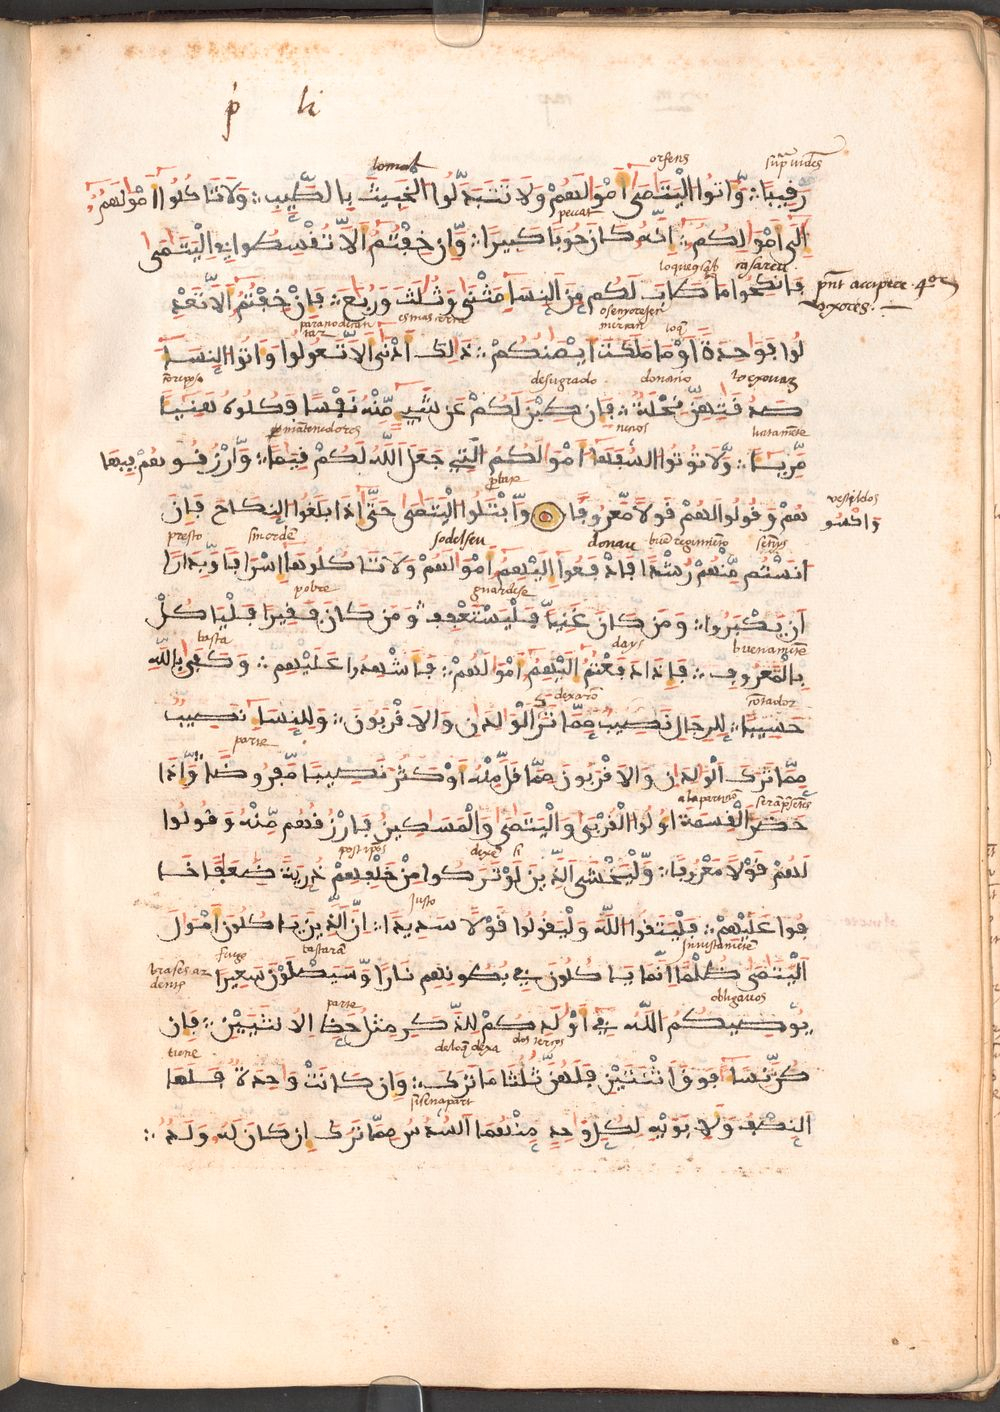 p li
tomab orfens supra uides
رقيبا وّاتوا اليتمى أموالهم ولا تتبدلوا الخبيث بالطيب ولا تاكلوا أموالهم
peccat
إلى أموالكم إنه كان حوبا كبيرا وإن خفتم ألا تقسطوا في اليتمى
casaren
فانكحوا ما طاب لكم من النسا مثنى وثلث وربع فإن خفتم ألا تعد
pnt accipere 4or
uxores
es mas cerca
لوا فوحدة أو ما ملكت أيمنكم ذلك أدنى ألا تعولوا واتوا النسا
desugrado donario
صدقتهن نحلة فإن طبن لكم عن شي منه نفسا فكلوه هنيا
mantenidores
مريا ولا توتوا السفها أموالكم التي جعل الله لكم قيما وارزقوهم فيها
vestildos
واكسو
هم وقولوا لهم قولا معروفا وابتلوا اليتمى حتى إذا بلغوا النكاح فإن
presto donau
انستم منهم رشدا فادفعوا إليهم أموالهم ولا تاكلوها إسرافا وبدارا
pobre guardese
أن يكبروا ومن كان غنيا فليستعفف ومن كان فقيرا فلياكل
basta days
بالمعروف فإذا دفعتم إليهم أموالهم فأشهدوا عليهم وكفى بالله
contador
حسيبا للرجال نصيب مما ترك الولدان والاقربون وللنسا نصيب
parte
مما ترك الولدان والاقربون مما قل منه أو كثر نصيبا مفروضا وإذا
حضر القسمة أولوا القربى واليتمى والمسكين فارزقوهم منه وقولوا
لهم قولا معروفا وليخش الذين لو تركوا من خلفهم ذرية ضعفا خا
justo
فوا عليهم فليتقوا الله وليقولوا قولا سديدا إن الذين ياكلون أموال
fuego
brases ar
dents
اليتمى ظلما إنما ياكلون في بطونهم نارا وسيصلون سعيرا
parte obligauos
يوصيكم الله في أولدكم للذكر مثل حظ الانثيين فإن
tiene deloq dexa dos tercos
كن نسا فوق اثنتين فلهن ثلثا ما ترك وإن كانت وحدة فلها
النصف ولابويه لكل وحد منهما السدس مما ترك إن كان له ولد